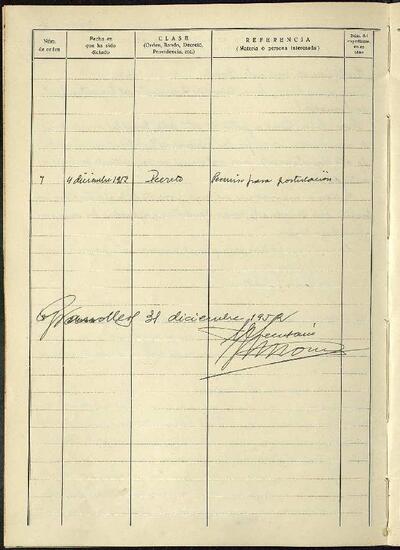 Núm. de orden
Fecha en que ha sido dictado
CLASE
(Orden, Bando, Decreto, Providencia, etc.)
REFERENCIA
(Materia o persona interesada)
Núm. del
7 4 diciembre 1952 Decreto Permiso para postulación
Granollers 31 diciembre 1952
El Secretario